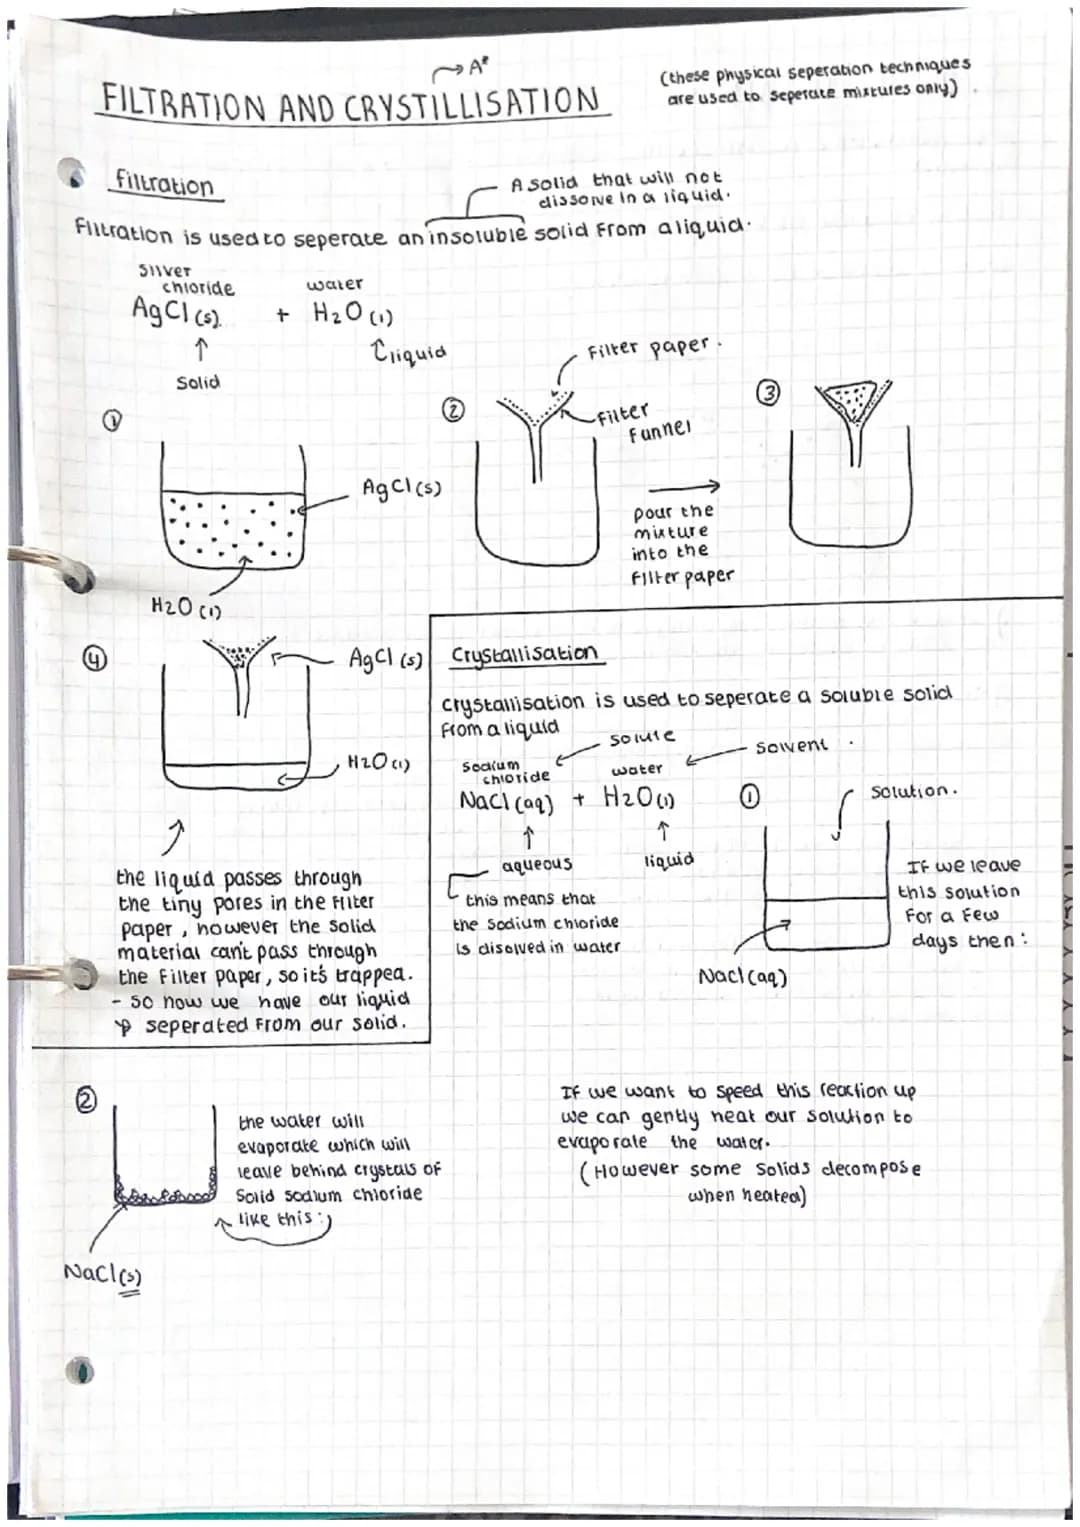 A*
FILTRATION AND CRYSTILLISATION
(these physical seperation techniques
are used to seperate mixtures only)
filtration
A solid that will not
dissolve in a liquid.
Filtration is used to seperate an insoluble solid from a liquid.
Silver
chloride
water
AgCl (s). + H2O (l)
Solid
liquid
Filter paper.
①
②
Filter
Funnel
③
AgCl (s)
H2O (l)
pour the
mixture
into the
Filter paper
④
AgCl (s)
H2O (l)
the liquid passes through
the tiny pores in the filter
paper, however the solid
material can't pass through
the filter paper, so it's trapped.
- so now we have our liquid
seperated from our solid.
Crystallisation
Crystallisation is used to seperate a soluble solid
from a liquid
solute
solvent.
Sodium
chloride
water
NaCl (aq) + H2O (l)
aqueous
liquid
this means that
the Sodium chloride
is disolved in water
①
solution.
NaCl (aq)
If we leave
this solution
for a few
days then:
②
the water will
evaporate which will
leave behind crystals of
Solid sodium chloride
like this:
NaCl (s)
If we want to speed this reaction up
we can gently heat our solution to
evaporate the water.
(However some solids decompose
when heated)